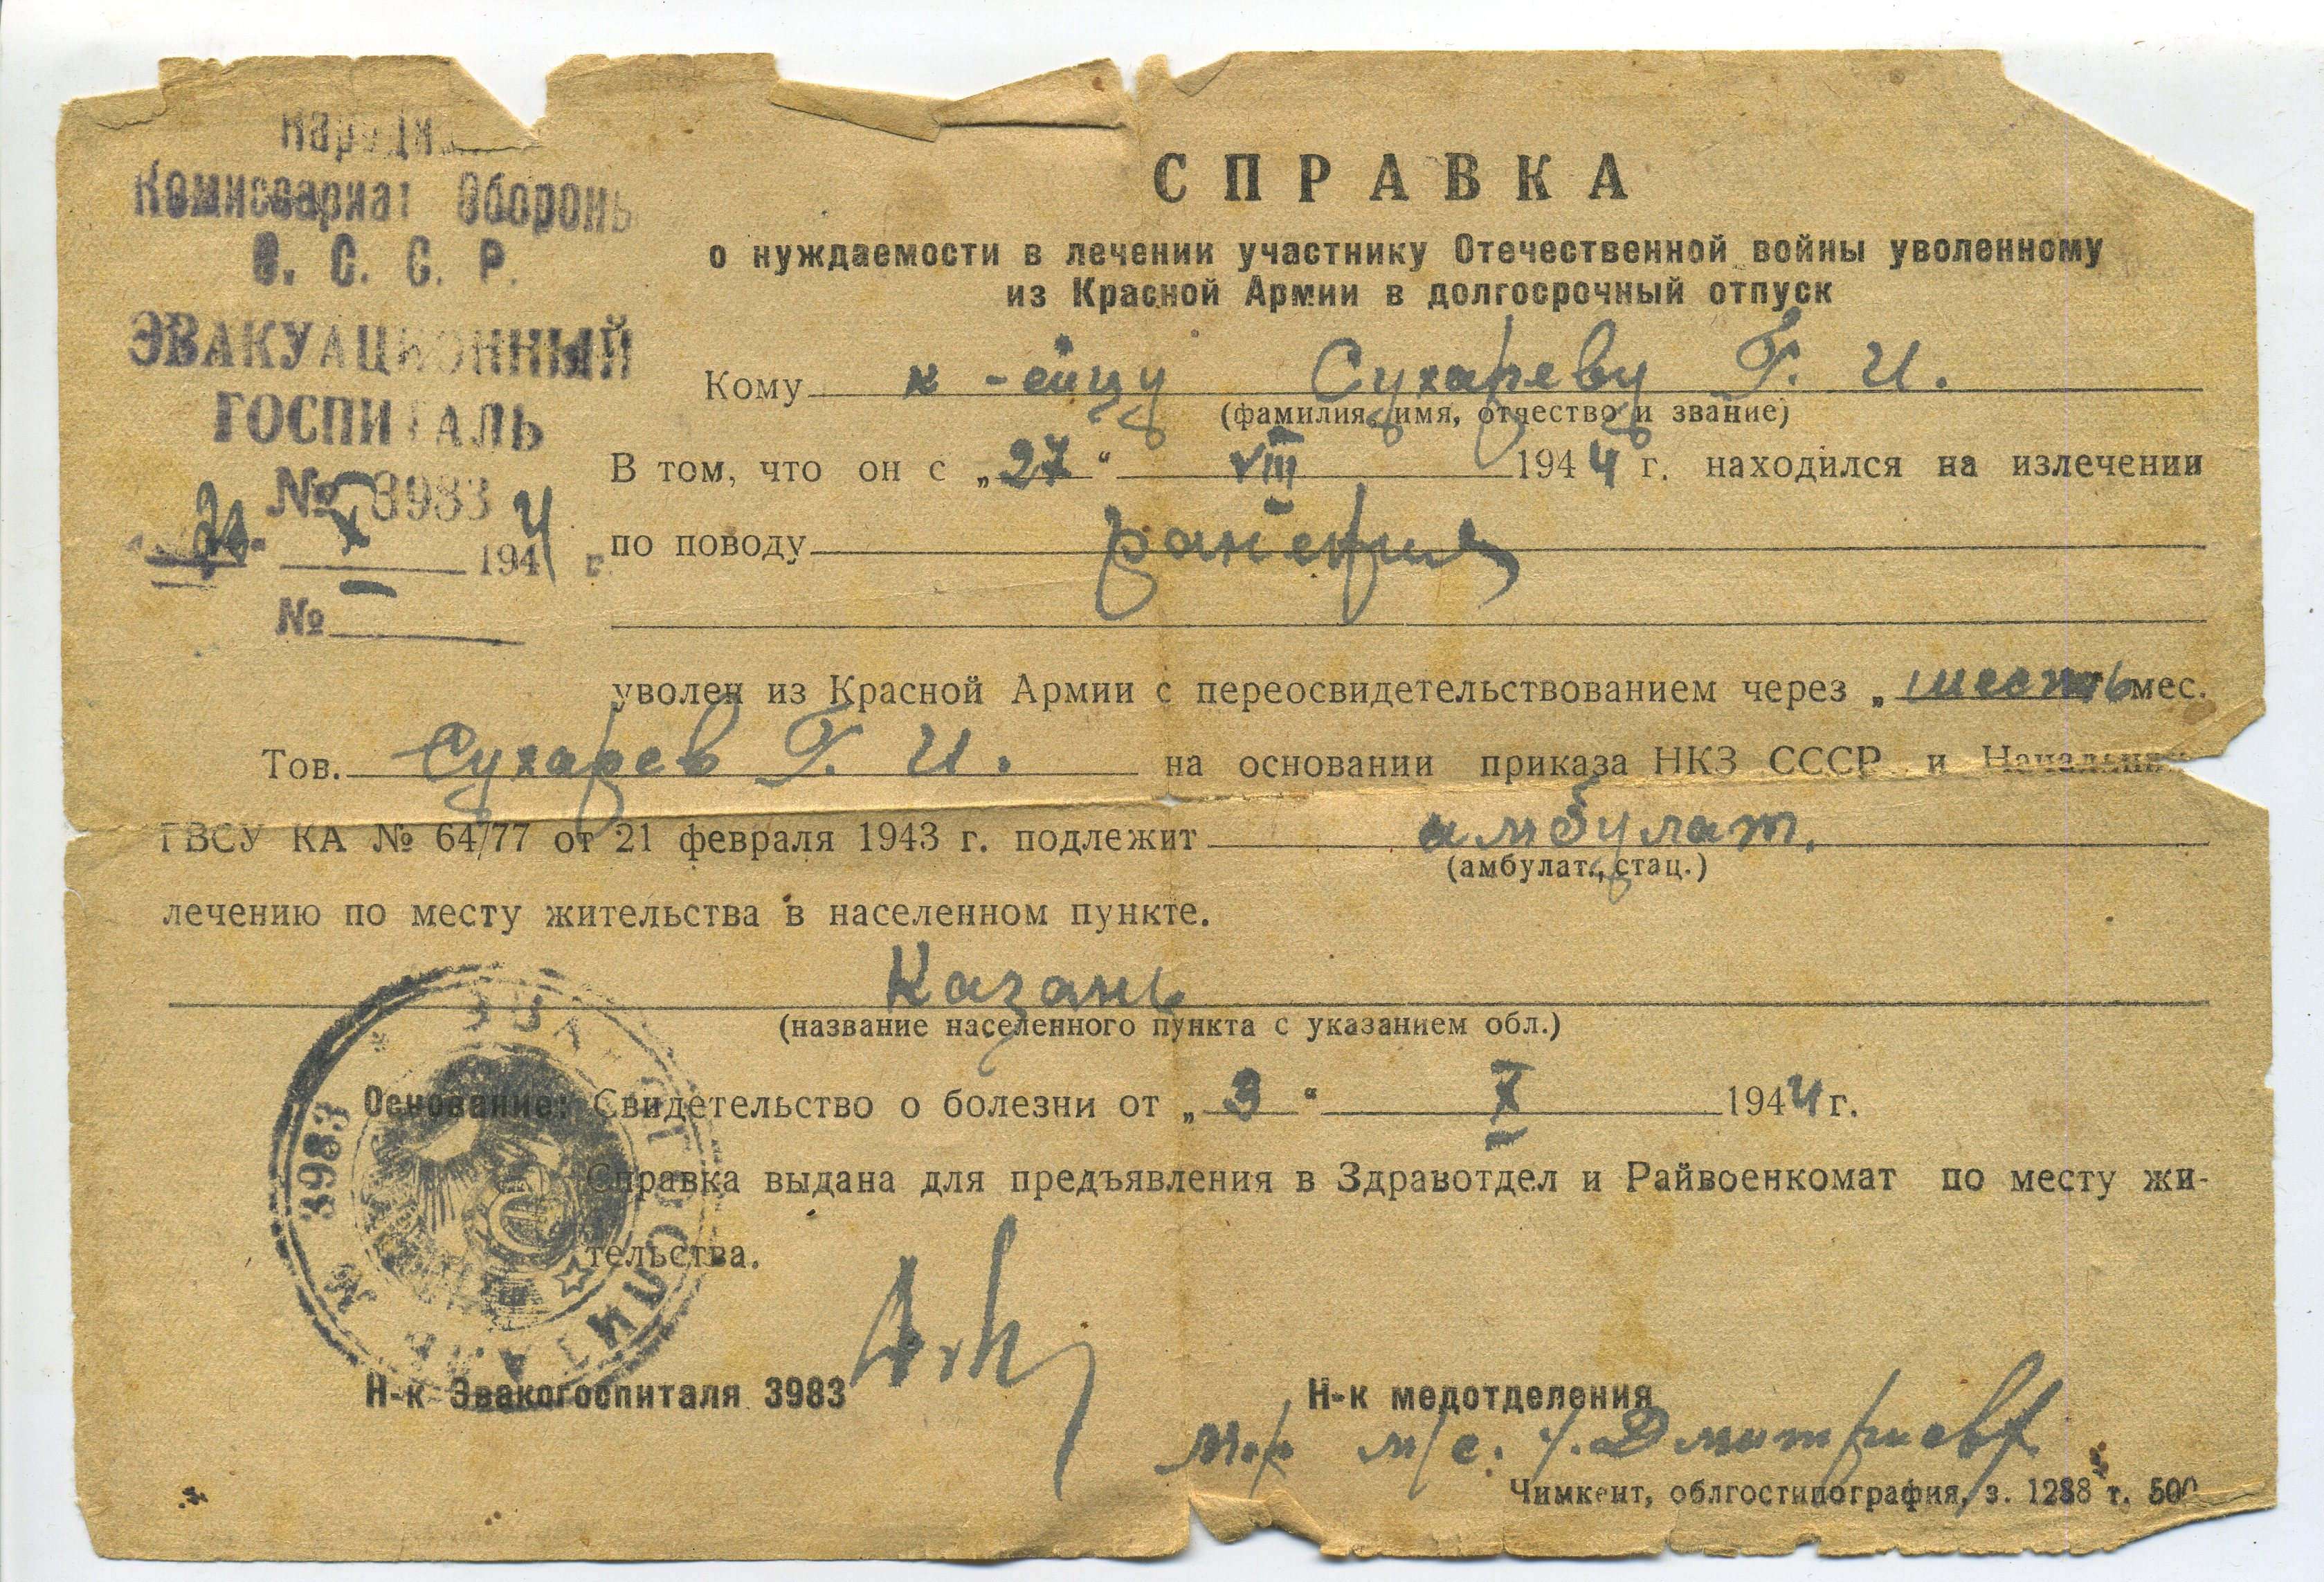 Комиссариат Обороны
С. С. С. Р.
ЭВАКУАЦИОННЫЙ
ГОСПИТАЛЬ
№ 3983
X 1944 г.
№
СПРАВКА
о нуждаемости в лечении участнику Отечественной войны уволенному
из Красной Армии в долгосрочный отпуск
Кому к-ейцу Сухареву Г. И.
(фамилия, имя, отчество и звание)
В том, что он с „27“ VIII 1944 г. находился на излечении
по поводу ранения
уволен из Красной Армии с переосвидетельствованием через „шесть“ мес.
Тов. Сухарев Г. И. на основании приказа НКЗ СССР и
ГВСУ КА № 64/77 от 21 февраля 1943 г. подлежит амбулат.
(амбулат., стац.)
лечению по месту жительства в населенном пункте.
Казань
(название населенного пункта с указанием обл.)
Основание: Свидетельство о болезни от „3“ X 1944 г.
Справка выдана для предъявления в Здравотдел и Райвоенкомат по месту жи-
тельства.
ЭВАКОГОСПИТАЛЬ № 3983
Н-к Эвакогоспиталя 3983
Н-к медотделения
м/с. Дмитриева
Чимкент, облгостипография, з. 1288 т. 500